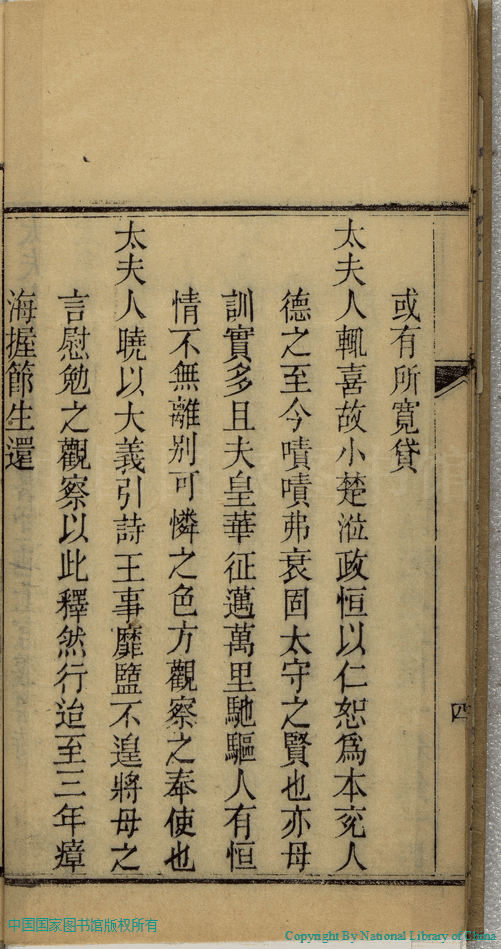 或有所寬貸
太夫人輒喜故小楚涖政恒以仁恕爲本兗人
德之至今嘖嘖弗衰固太守之賢也亦母
訓實多且夫皇華征邁萬里馳驅人有恒
情不無離别可憐之色方觀察之奉使也
太夫人曉以大義引詩王事靡盬不遑將母之
言慰勉之觀察以此釋然行迨至三年瘴
海握節生還
四
中国国家图书馆版权所有
Copyright By National Library of China